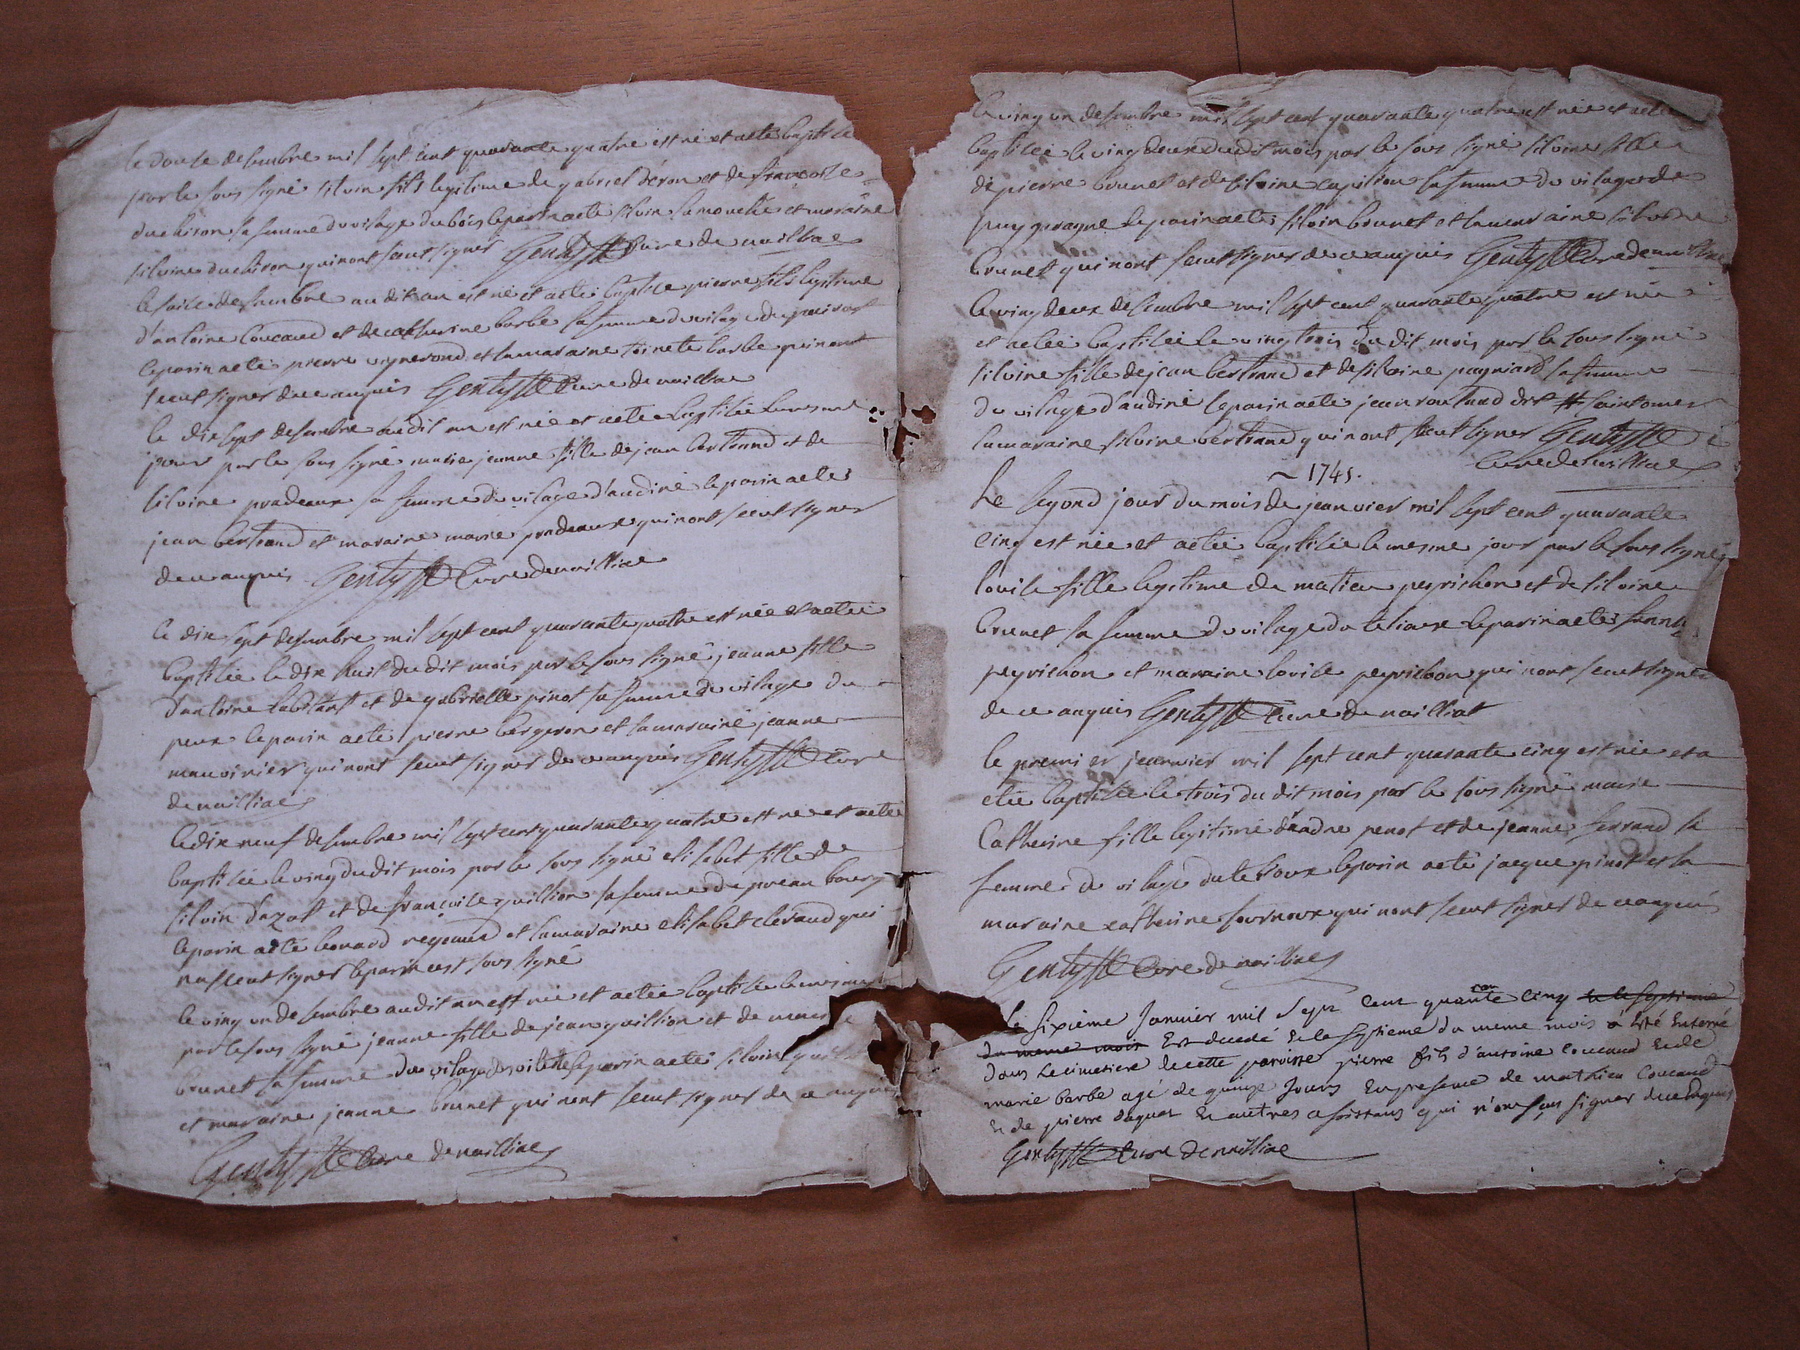 le douse desembre mil sept cent quarante quatre est né et aeté baptisé
par le sous signé silvin fils legitime de gabriel deron et de françoise
duchiron sa femme du vilage du bois le parin aeté silvin lamouche et maraine
silvine duchiron qui nont seeut signer Gentysse Cure de nailliac
le saise desembre au dit an est né et aeté baptise pierre fils legitime
d'antoine Coucaud et de catherine barbe sa femme du vilage du
le parin aeté pierre vignerond et la maraine toinete barbe qui nont
seeut signer de ce anquis Gentysse Cure de nailliac
le dix sept desembre audit an est née et aetée baptisée le mesme
jour par le sous signé marie jeanne fille de jean bertrand et de
silvine pradeaux sa femme du vilage d'audine le parin aeté
jean bertrand et maraine marie pradeaux qui nont seeut signer
de ce anquis Gentysse Cure de nailliac
le dix sept desembre mil sept cent quarante quatre est née et aetée
baptisée le dix huit du dit mois par le sous signé jeanne fille
d'antoine et de gabrielle pinot sa femme du vilage du
peux le parin aeté pierre bergeron et la maraine jeanne
qui nont seeut signer de ce anquis Gentysse Cure
de nailliac
le dix neuf desembre mil sept cent quarante quatre est ne et aeté
baptisée le ving du dit mois par le sous signé elisabet fille de
silvin dazat et de françoise quillion sa femme du preau bourg
le parin aeté leonard et la maraine elisabet qui
na seeut signer le parin cest sous signé
le ving un desembre audit an est née et aetée baptisée le mesme
par le sous signé jeanne fille de jean quillion et de marie
brunet sa femme du vilage du le parin aeté silvin
et maraine jeanne brunet qui nont seeut signer de ce anquis
Gentysse Cure de nailliac
le ving un desembre mil sept cent quarante quatre est née et aeté
baptisée le ving deux du dit mois par le sous signé silvine fille
de pierre brunet et de silvine sa femme du vilage de
puy le parin aeté silvin brunet et la maraine silvine
brunet qui nont seeut signer de ce anquis Gentysse Cure de nailliac
le ving deux desembre mil sept cent quarante quatre est née
et aetée baptisée le ving trois du dit mois par le sous signé
silvine fille de jean bertrand et de silvine sa femme
du vilage d'audine le parin aeté jean dit
la maraine silvine bertrand qui nont seeut signer Gentysse
Cure de nailliac
~ 1745.
Le segond jour du mois de jeanvier mil sept cent quarante
cinq est née et aetée baptisée le mesme jour par le sous signé
louise fille legitime de matieu peyrichon et de silvine
brunet sa femme du vilage du le parin aeté
peyrichon et maraine louise peyrichon qui nont seeut signer
de ce anquis Gentysse Cure de nailliat
le premier jeanvier mil sept cent quarante cinq est née et a
etée baptisée le trois du dit mois par le sous signé marie
Catherine fille legitime d'andre penot et de jeanne ferrand sa
femme du vilage du le parin aeté jacque pinot et la
maraine catherine fournoux qui nont seeut signer de ce anquis
Gentysse Cure de nailliac
Le sixième Janvier mil sept cent quarante cinq et le septieme
du meme mois Est decedé Et le septieme du meme mois a été Enterré
dans le cimetiere de cette paroisse pierre fils d'antoine coucaud Et de
marie barbe agé de quinze Jours En presence de mathieu coucaud
Et de pierre daguet Et autres assistans qui n'ont sçus signer de ce Enquis
Gentysse Cure de nailliac